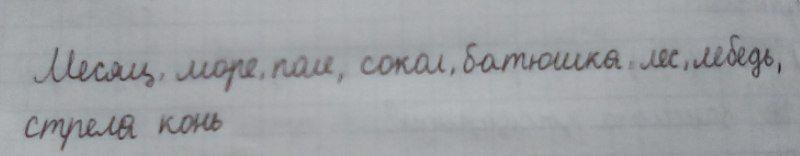 Месяц, море, поле, сокол, батюшка, лес, лебедь,
стрела конь